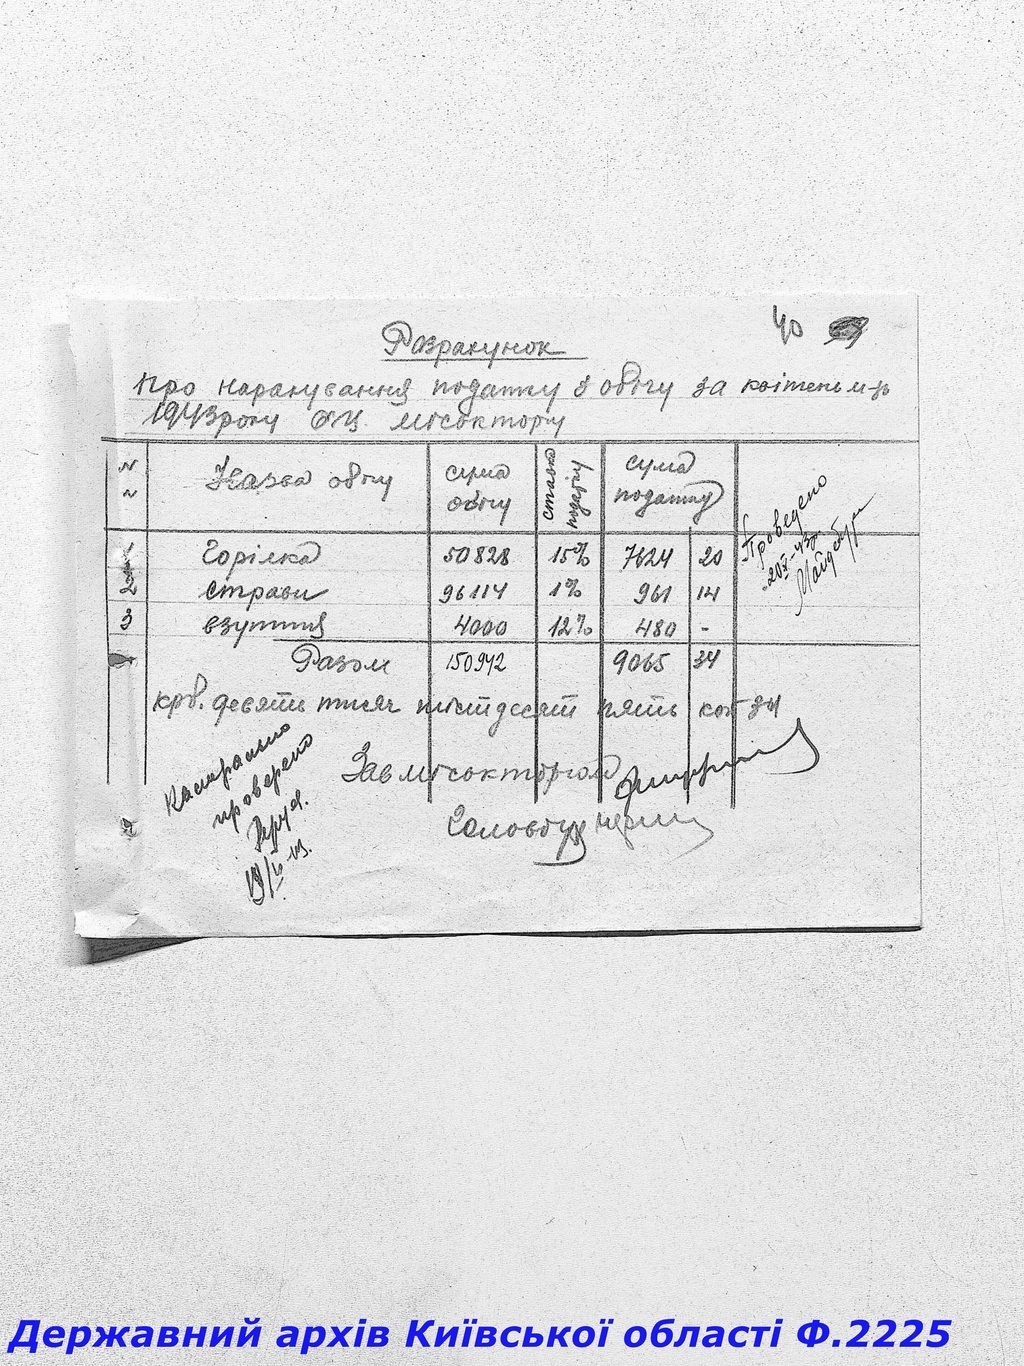 40
Розрахунок
Про нарахування податку з обігу за квітень м-ць
1943 року ОЦ. місоктору
N N | Назва обігу | сума обігу | ставка податку | сума податку
1 | Горілка | 50828 | 15% | 7624 | 20
2 | страви | 96114 | 1% | 961 | 14
3 | взуття | 4000 | 12% | 480 | -
Разом | 150942 | | 9065 | 34
крб. девять тисяч шістдесят пять коп 34
Проведено
20/V-43р.
Камерально
проверено
19/V-43.
Зав
Головбух
Державний архів Київської області Ф.2225